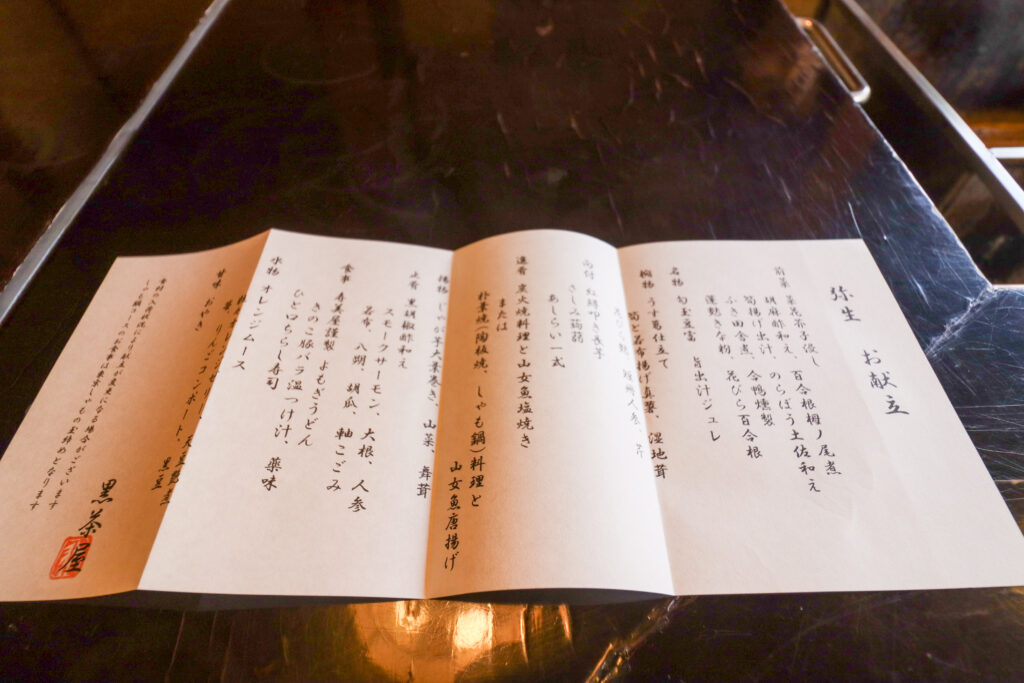 弥生 お献立
前菜 菜花芥子浸し 百合根梅ノ尾煮
胡麻酢和え、のらぼう土佐和え
筍揚げ出汁、合鴨燻製
ふき田舎煮、花びら百合根
蓬麩きな粉
名物 勾玉豆富 旨出汁ジュレ
椀物 うす葛仕立て
筍と若布揚げ真薯、湿地茸
人参、
向付 紅鱒叩き長芋
さしみ蒟蒻
あしらい一式
進肴 炭火焼料理と山女魚塩焼き
または
朴葉焼(陶板焼、しゃも鍋)料理と
山女魚唐揚げ
揚物 じゃが芋大葉巻き、山菜、舞茸
止肴 黒胡椒酢和え
スモークサーモン、大根、人参
若布、八朔、胡瓜、軸こごみ
食事 寿美屋謹製 よもぎうどん
きのこ豚バラ温つけ汁、薬味
ひと口ちらし寿司
水物 オレンジムース
苺、りんごコンポート、天豆艶煮
甘味 おやき 黒豆
食材の入荷状況により献立が変更になる場合がございます
黒茶屋